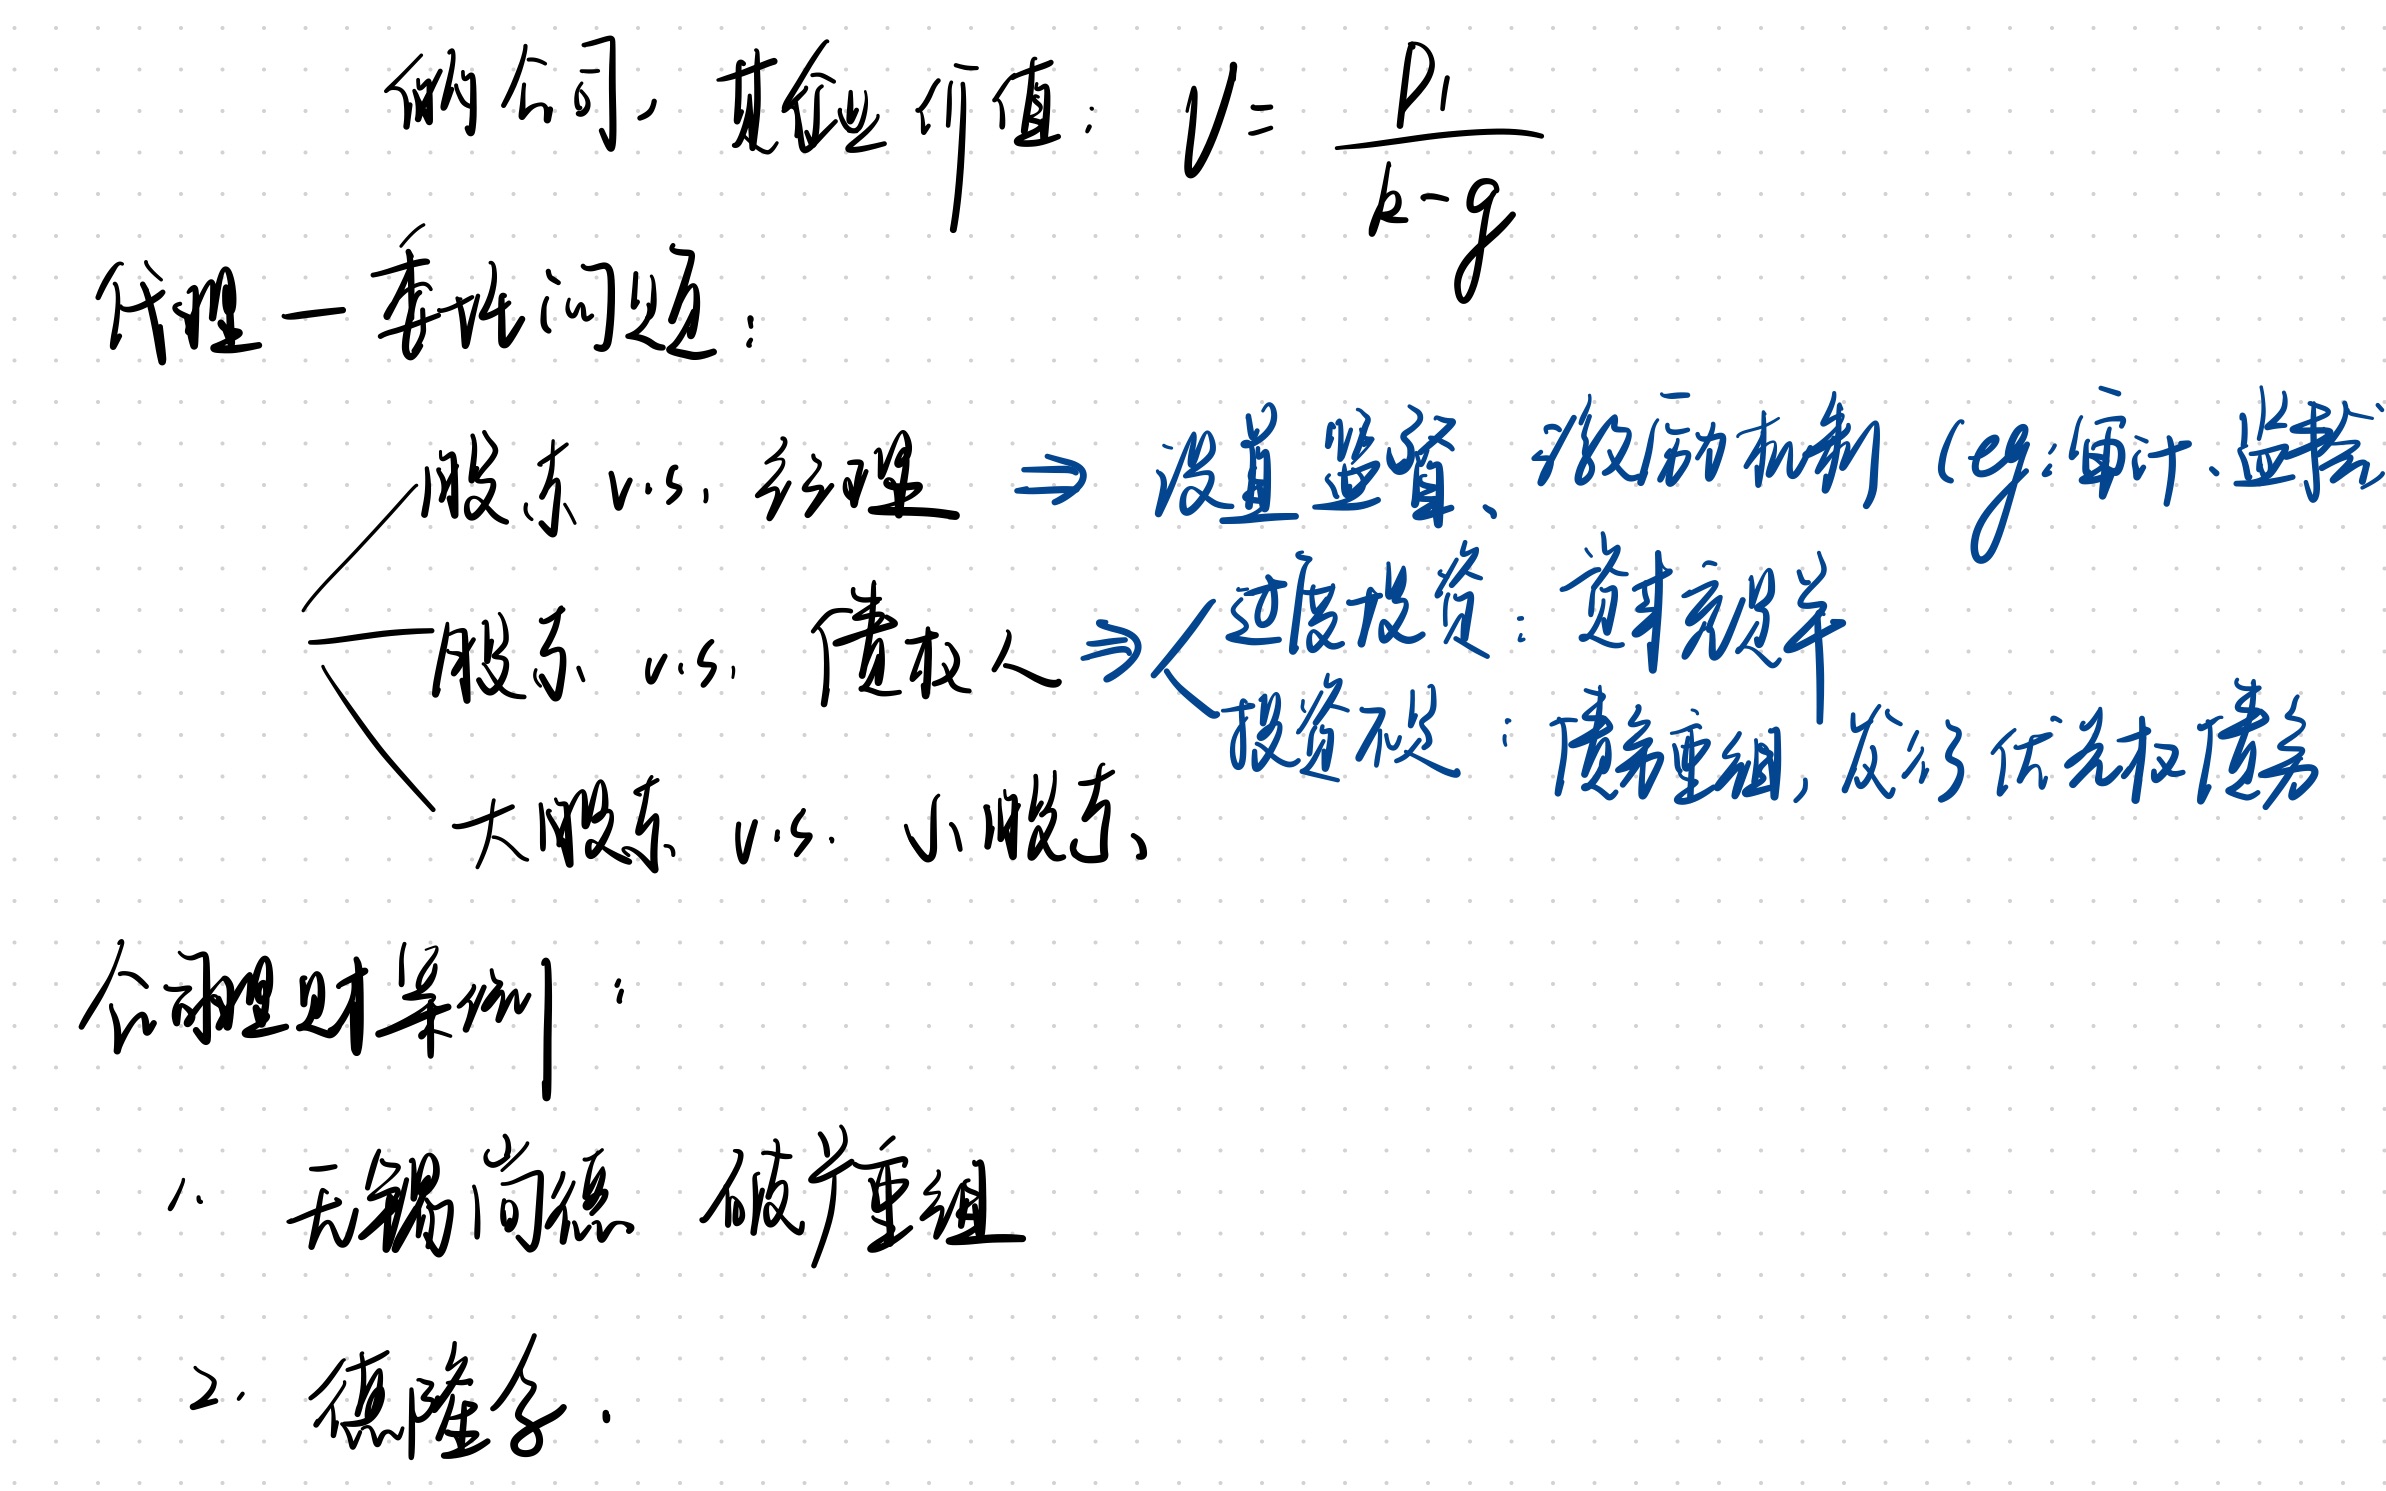 的公司,其企业价值: V = P₁ / (k-g)
代理—委托问题:
股东 v.s. 经理 ⇒ 设置监督、激励机制 (eg: 审计、监事
股东 v.s. 债权人 ⇒ 过度投资: 资本效率
投资不足: 债务重组, 发行优先权债务
大股东 v.s. 小股东、
公司理财案例:
1. 无锡尚德 破产重组
2. 德隆系.